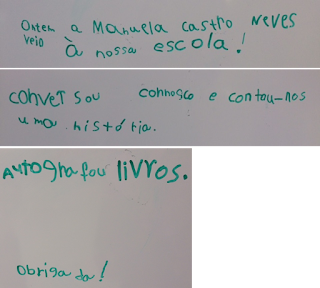 Ontem a Manuela Castro Neves
veio à nossa escola!
Conversou connosco e contou-nos
uma história.
Autografou livros.
Obrigada!